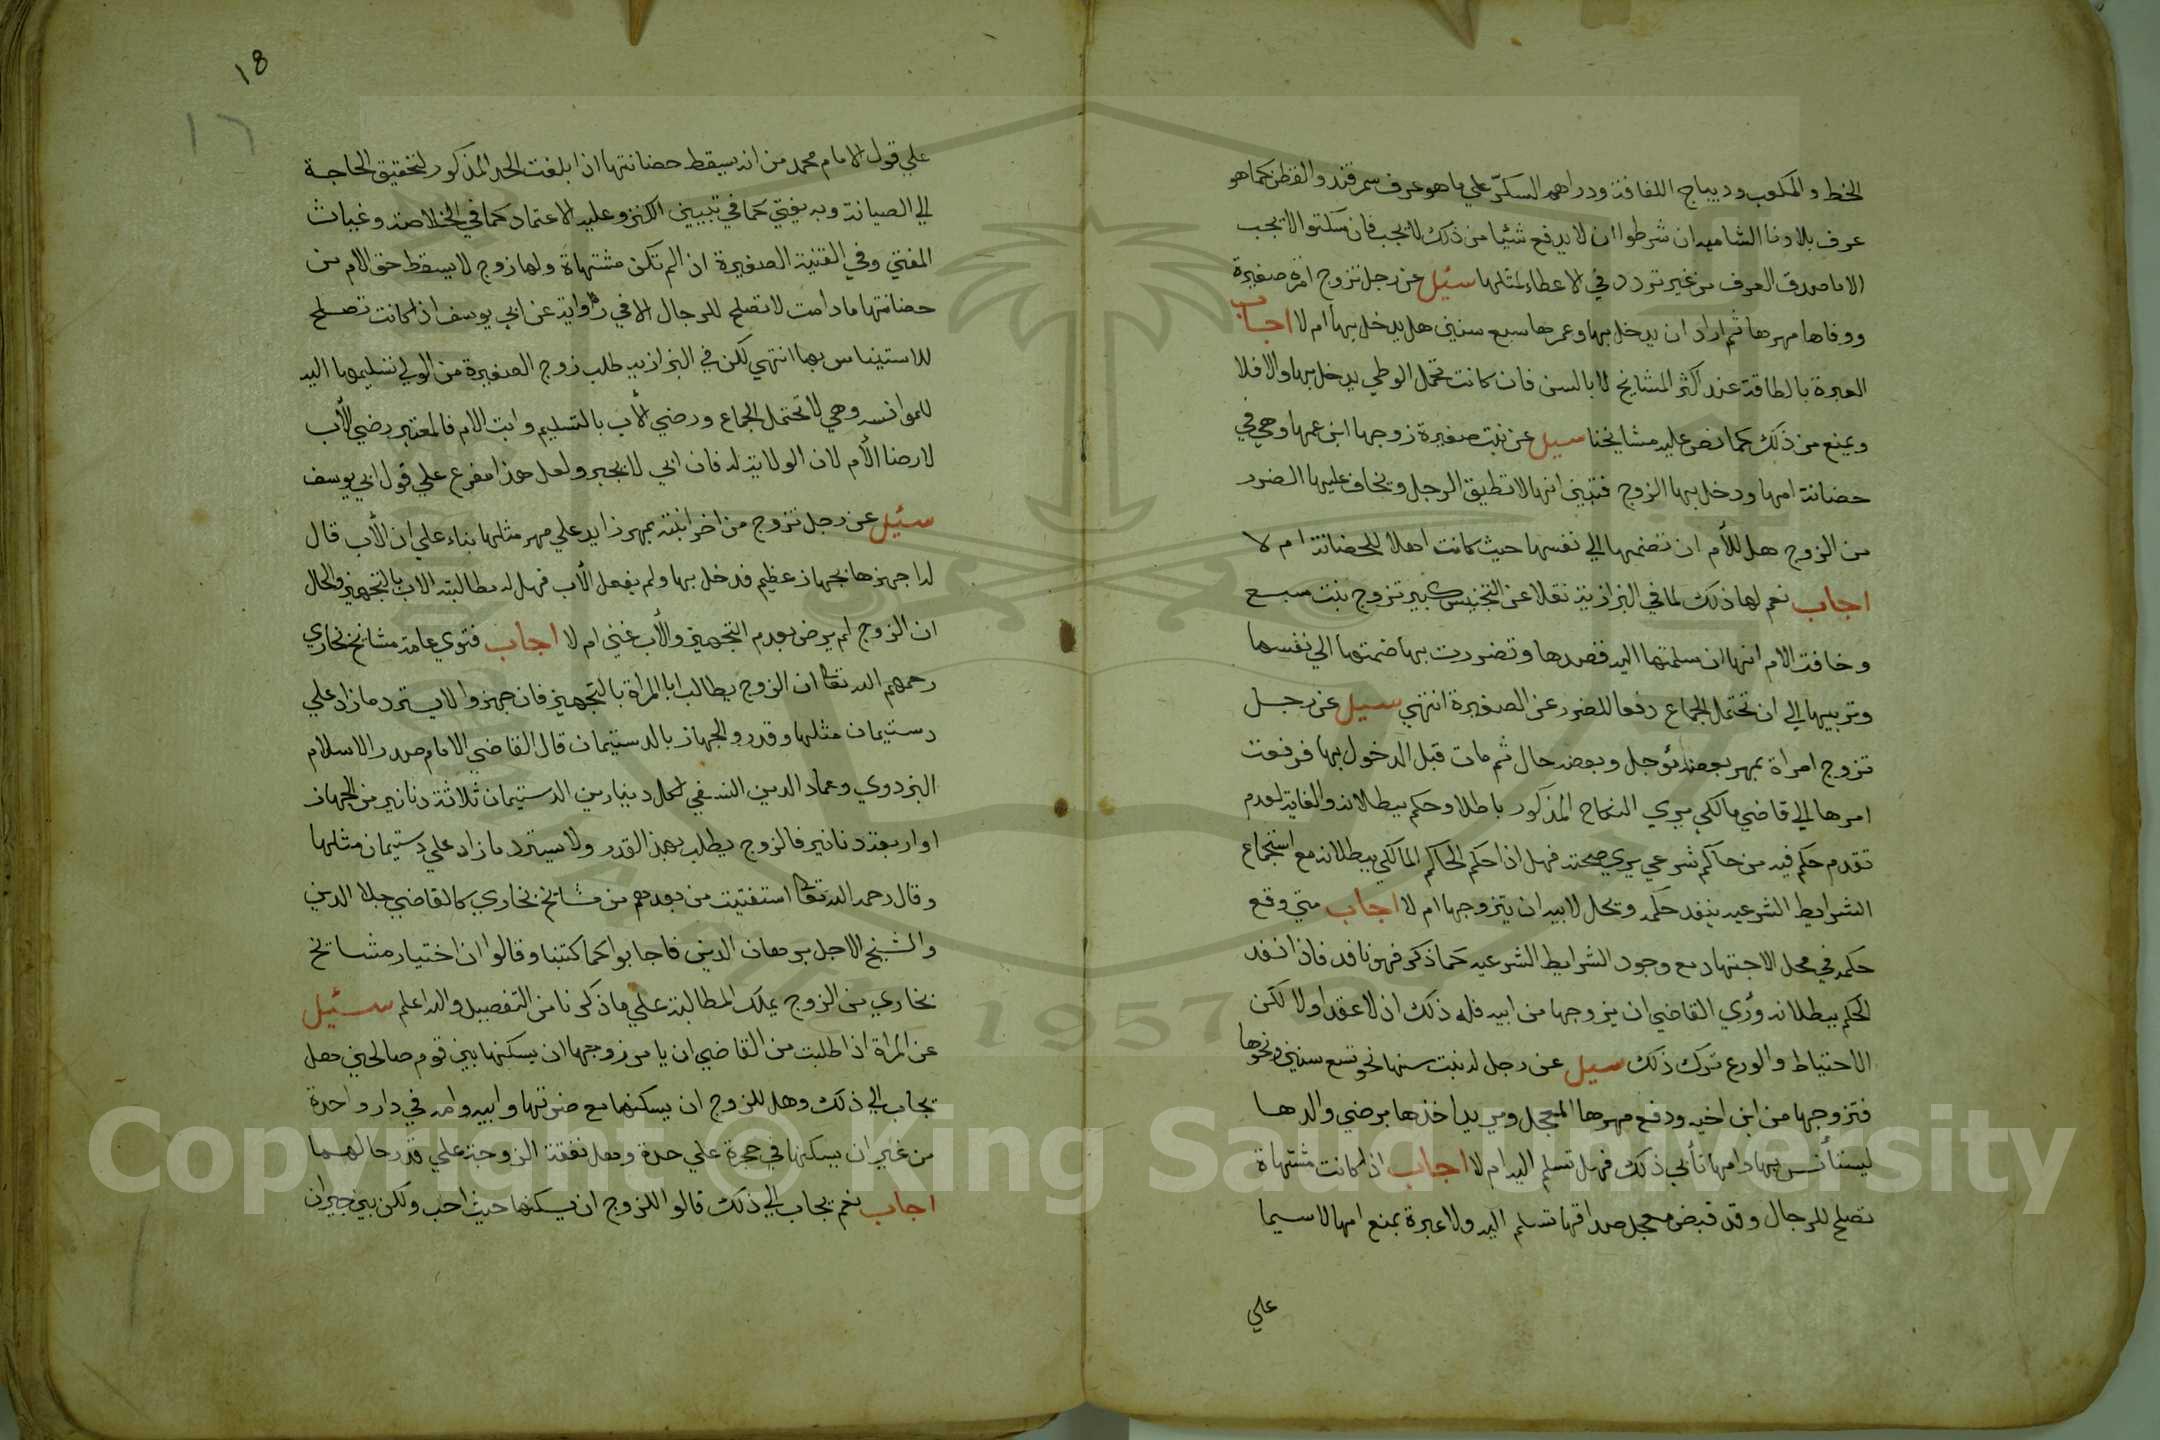 الخط والمكعب وديباج اللفافة ودراهم السكر علي ما هو عرف سمرقند والقطن كما هو
عرف بلادنا الشاميه ان شرطوا ان لا يدفع شيئا من ذلك لا يجب فان سكتوا لا يجب
الا ما صدق العرف من غير تردد في الاعطاء لمثلها سئيل عن رجل تزوج امرة صغيرة
ووفاها مهرها ثم اراد ان يدخل بها وعمرها سبع سنين هل يدخل بها ام لا اجاب
العبرة بالطاقة عند اكثر المشايخ لا بالسن فان كانت تحمل الوطي يدخل بها والا فلا
ويمنع من ذلك كما نص عليه مشايخنا سيل عن بنت صغيرة زوجها ابن عمها وهي في
حضانة امها ودخل بها الزوج فتبين انها لا تطيق الرجل ويخاف عليها الضرر
من الزوج هل للأم ان تضمها الي نفسها حيث كانت اهلا للحضانة ام لا
اجاب نعم لها ذلك لما في البزازية نقلا عن التجنيس كبير تزوج بنت سبع
وخافت الام انها ان سلمتها اليه قصدها وتضررت بها ضمتها الي نفسها
وتربيها الي ان تحتمل الجماع دفعا للضرر عن الصغيرة انتهي سيل عن رجل
تزوج امراة بمهر بعضه مؤجل وبعضه حال ثم مات قبل الدخول بها فرفعت
امرها الي قاضي مالكي يري النكاح المذكور باطلا وحكم ببطلانه والغايه لعدم
تقدم حكم فيه من حاكم شرعي يري صحته فهل اذا حكم الحاكم المالكي ببطلانه مع استجماع
الشرايط الشرعيه ينفد حكمه ويحل لابيه ان يتزوجها ام لا اجاب متي وقع
حكمه في محل الاجتهاد مع وجود الشرايط الشرعيه كما ذكر فهو نافد فاذا نفد
الحكم ببطلانه ورُي القاضي ان يزوجها من ابيه فله ذلك اذ لا عقد اولا لكن
الاحتياط والورع ترك ذلك سيل عن رجل له بنت سنها نحو تسع سنين ونحوها
فتزوجها من ابن اخيه ودفع مهرها المعجل ويريد اخذها برضي والدها
ليستأنس بها وامها تأبي ذلك فهل تسلم اليه ام لا اجاب اذا كانت مشتهاة
تصلح للرجال وقد قبض معجل صداقها تسلم اليه ولا عبرة بمنع امها لا سيما
علي
18
١٦
علي قول الامام محمد من انه يسقط حضانتها اذا بلغت الحد المذكور لتحقيق الحاجة
الي الصيانة وبه يفتي كما في تبيين الكنز وعليه الاعتماد كما في الخلاصة وغياث
المفتي وفي القنية الصغيرة اذا لم تكن مشتهاة ولها زوج لا يسقط حق الام من
حضانتها ما دامت لا تصلح للرجال الا في رواية عن ابي يوسف اذا كانت تصلح
للاستيناس بها انتهي لكن في البزازيه طلب زوج الصغيرة من الولي تسليمها اليه
للموانسه وهي لا تحتمل الجماع ورضي الأب بالتسليم وابت الام فالمعتبر رضي الأب
لا رضا الأم لان الولاية له فان ابي لا يجبر ولعل هذا مفرع علي قول ابي يوسف
سئيل عن رجل تزوج من اخر ابنته بمهر زايد علي مهر مثلها بناء علي ان الأب قال
له اجهزها بجهاز عظيم فدخل بها ولم يفعل الأب فهل له مطالبة الاب بالتجهيز والحال
ان الزوج لم يرض بعدم التجهيز والأب غني ام لا اجاب فتوي عامة مشايخ بخاري
رحمهم الله تعا ان الزوج يطالب ابا المراة بالتجهيز فان جهز والا يسترد ما زاد علي
دستيمان مثلها وقدروا الجهاز بالدستيمان قال القاضي الامام صدر الاسلام
البزدوي وعماد الدين النسفي لكل دينار من الدستيمان ثلاثة دنانير من الجهاز
او اربعة دنانير فالزوج يطلب بهذ القدر ولا يسترد ما زاد علي دستيمان مثلها
وقال رحمه الله تعا استفتيت من بعدهم من مشايخ بخاري كالقاضي جلا الدين
والشيخ الاجل برهان الدين فاجابوا كما كتبنا وقالوا ان اختيار مشايخ
بخاري من الزوج يملك المطالبة علي ما ذكرنا من التفصيل والله اعلم سئيل
عن المراة اذا طلبت من القاضي ان يامر زوجها ان يسكنها بين قوم صالحين هل
تجاب الي ذلك وهل للزوج ان يسكنها مع ضرتها وابيه وامه في دار واحدة
من غير ان يسكنها في حجرة علي حدة وهل نفقة الزوجة علي قدر حالهما
اجاب نعم تجاب الي ذلك قالوا للزوج ان يسكنها حيث احب ولكن بين جيران
Copyright © King Saud University
1957